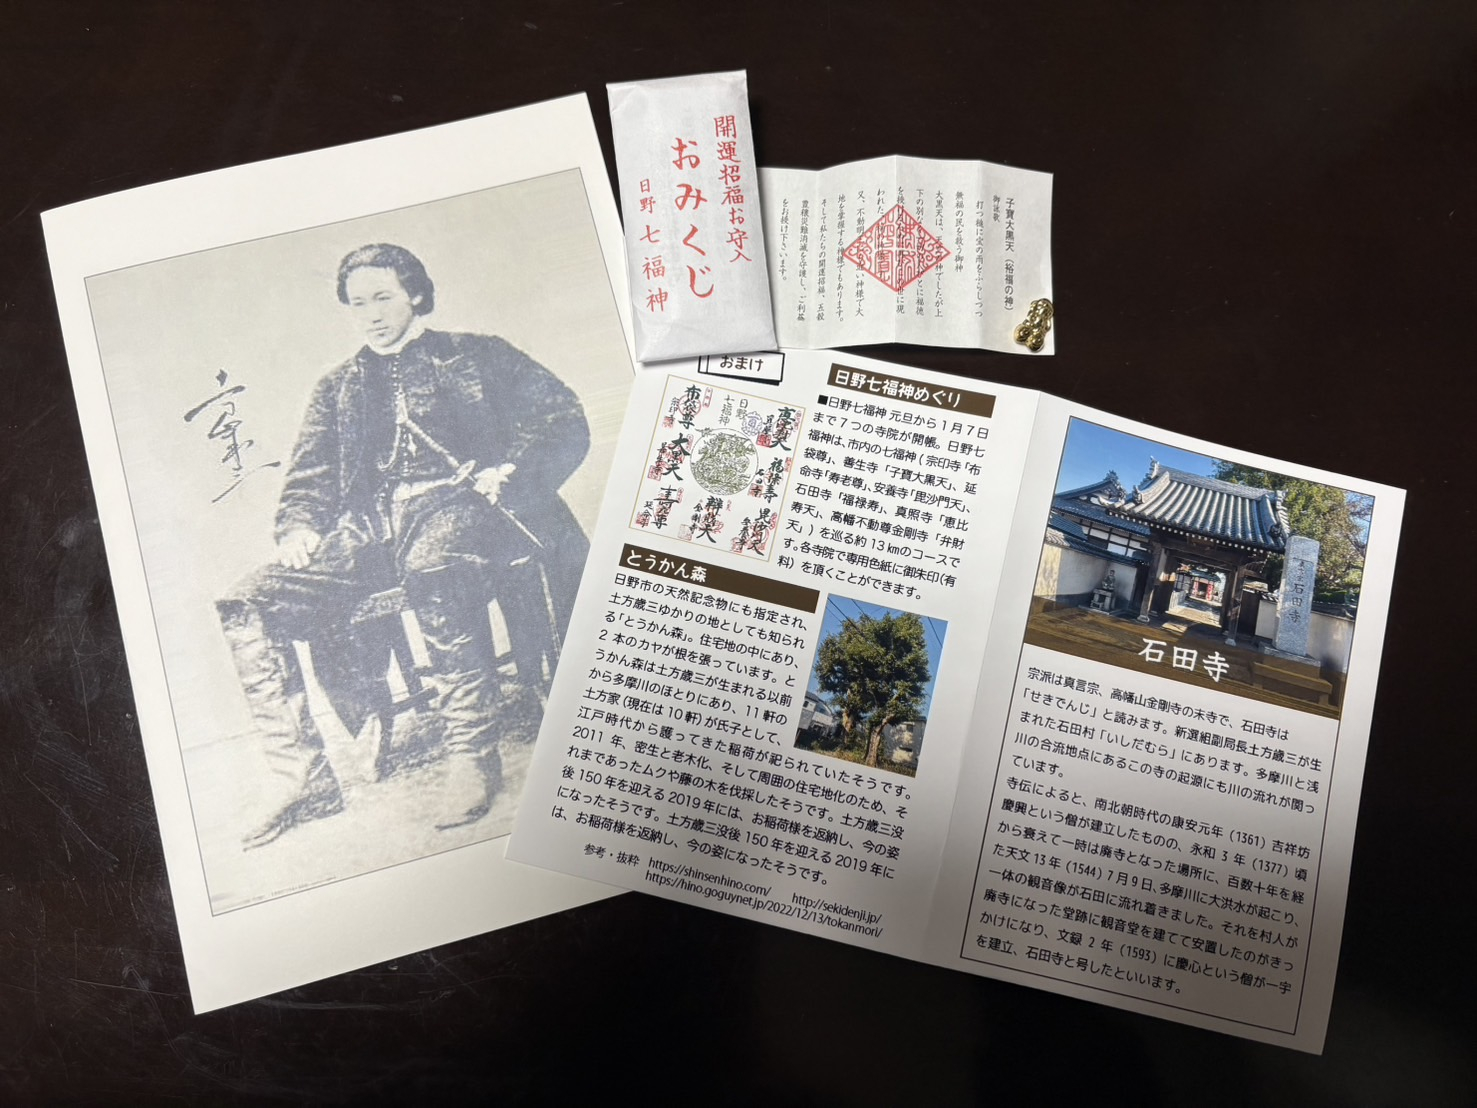 開運招福お守入
おみくじ
日野七福神
子寶大黒天（裕福の神）
御詠歌
打つ槌に宝の雨をふらしつつ
無福の民を救う御神
大黒天は、
又、不動明
地を掌握する神様でもあります。
そして私たちの開運招福、五穀
豊穣災難消滅を守護し、ご利益
をお授け下さいます。
おまけ
布袋尊
日野
七福神
大黒天
福禄寿
石田寺
辨財天
金剛寺
日野七福神めぐり
■日野七福神 元旦から１月７日
まで７つの寺院が開帳。日野七
福神は、市内の七福神（宗印寺「布
袋尊」、善生寺「子寶大黒天」、延
命寺「寿老尊」、安養寺「毘沙門天」、
石田寺「福禄寿」、真照寺「恵比
寿天」、高幡不動尊金剛寺「弁財
天」）を巡る約 13 ㎞のコースで
す。各寺院で専用色紙に御朱印（有
料）を頂くことができます。
とうかん森
日野市の天然記念物にも指定され、
土方歳三ゆかりの地としても知られ
る「とうかん森」。住宅地の中にあり、
２本のカヤが根を張っています。と
うかん森は土方歳三が生まれる以前
から多摩川のほとりにあり、11 軒の
土方家（現在は 10 軒）が氏子として、
江戸時代から護ってきた稲荷が祀られていたそうです。
2011 年、密生と老木化、そして周囲の住宅地化のため、そ
れまであったムクや藤の木を伐採したそうです。土方歳三没
後 150 年を迎える 2019 年には、お稲荷様を返納し、今の姿
になったそうです。土方歳三没後 150 年を迎える 2019 年に
は、お稲荷様を返納し、今の姿になったそうです。
参考・抜粋 https://shinsenhino.com/ http://sekidenji.jp/
https://hino.goguynet.jp/2022/12/13/tokanmori/
石田寺
石田寺
宗派は真言宗、高幡山金剛寺の末寺で、石田寺は
「せきでんじ」と読みます。新選組副局長土方歳三が生
まれた石田村「いしだむら」にあります。多摩川と浅
川の合流地点にあるこの寺の起源にも川の流れが関っ
ています。
寺伝によると、南北朝時代の康安元年（1361）吉祥坊
慶興という僧が建立したものの、永和３年（1377）頃
から衰えて一時は廃寺となった場所に、百数十年を経
た天文 13 年（1544）７月９日、多摩川に大洪水が起こり、
一体の観音像が石田に流れ着きました。それを村人が
廃寺になった堂跡に観音堂を建てて安置したのがきっ
かけになり、文禄２年（1593）に慶心という僧が一宇
を建立、石田寺と号したといいます。